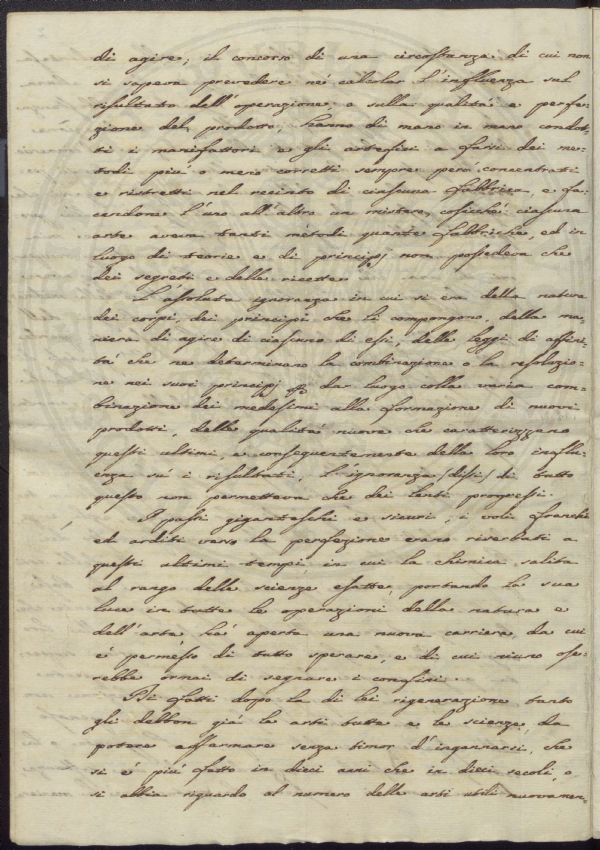 di agire; il concorso di una circostanza di cui non
si sapeva prevedere né calcolar l'influenza sul
risultato dell'operazione, o sulla qualitá e perfe-
zione del prodotto, hanno di mano in mano condot-
ti i manifattori e gli artefici a farsi dei me-
todi piú o meno corretti sempre peró concentrati
e ristretti nel recinto di ciascuna fabbrica, e fa-
cendone l'uno all'altro un mistero, cosicché ciascuna
arte aveva tanti metodi quante fabbriche, ed in
luogo di teorie e di principj non possedeva che
dei segreti e delle ricette.
L'assoluta ignoranza in cui si era della natura
dei corpi, dei principi che li compongono, della ma-
niera di agire di ciascuno di essi, delle leggi di affini-
tá che ne determinano la combinazione o la resoluzio-
ne nei suoi principj, dar luogo colla varia com-
binazione dei medesimi alla formazione di nuovi
prodotti, delle qualitá nuove che caratterizzano
questi ultimi, e conseguentemente della loro influ-
enza sú i risultati, l'ignoranza (dissi) di tutto
questo non permetteva che dei lenti progressi.
I passi giganteschi e sicuri, i voli franchi
ed arditi verso la perfezione erano riserbati a
questi ultimi tempi, in cui la chimica salita
al rango delle scienze esatte, portando la sua
luce in tutte le operazioni della natura e
dell'arte, há aperta una nuova carriera, da cui
é permesso di tutto sperare, e di cui niuno ose-
rebbe ormai di segnare i confini.
Di fatti dopo la di lei rigenerazione tanto
gli debbon giá le arti tutte e le scienze, da
potere affermare senza timor d'ingannarsi, che
si é piú fatto in dieci anni che in dieci secoli, o
si abbia riguardo al numero delle arti utili nuovamen-